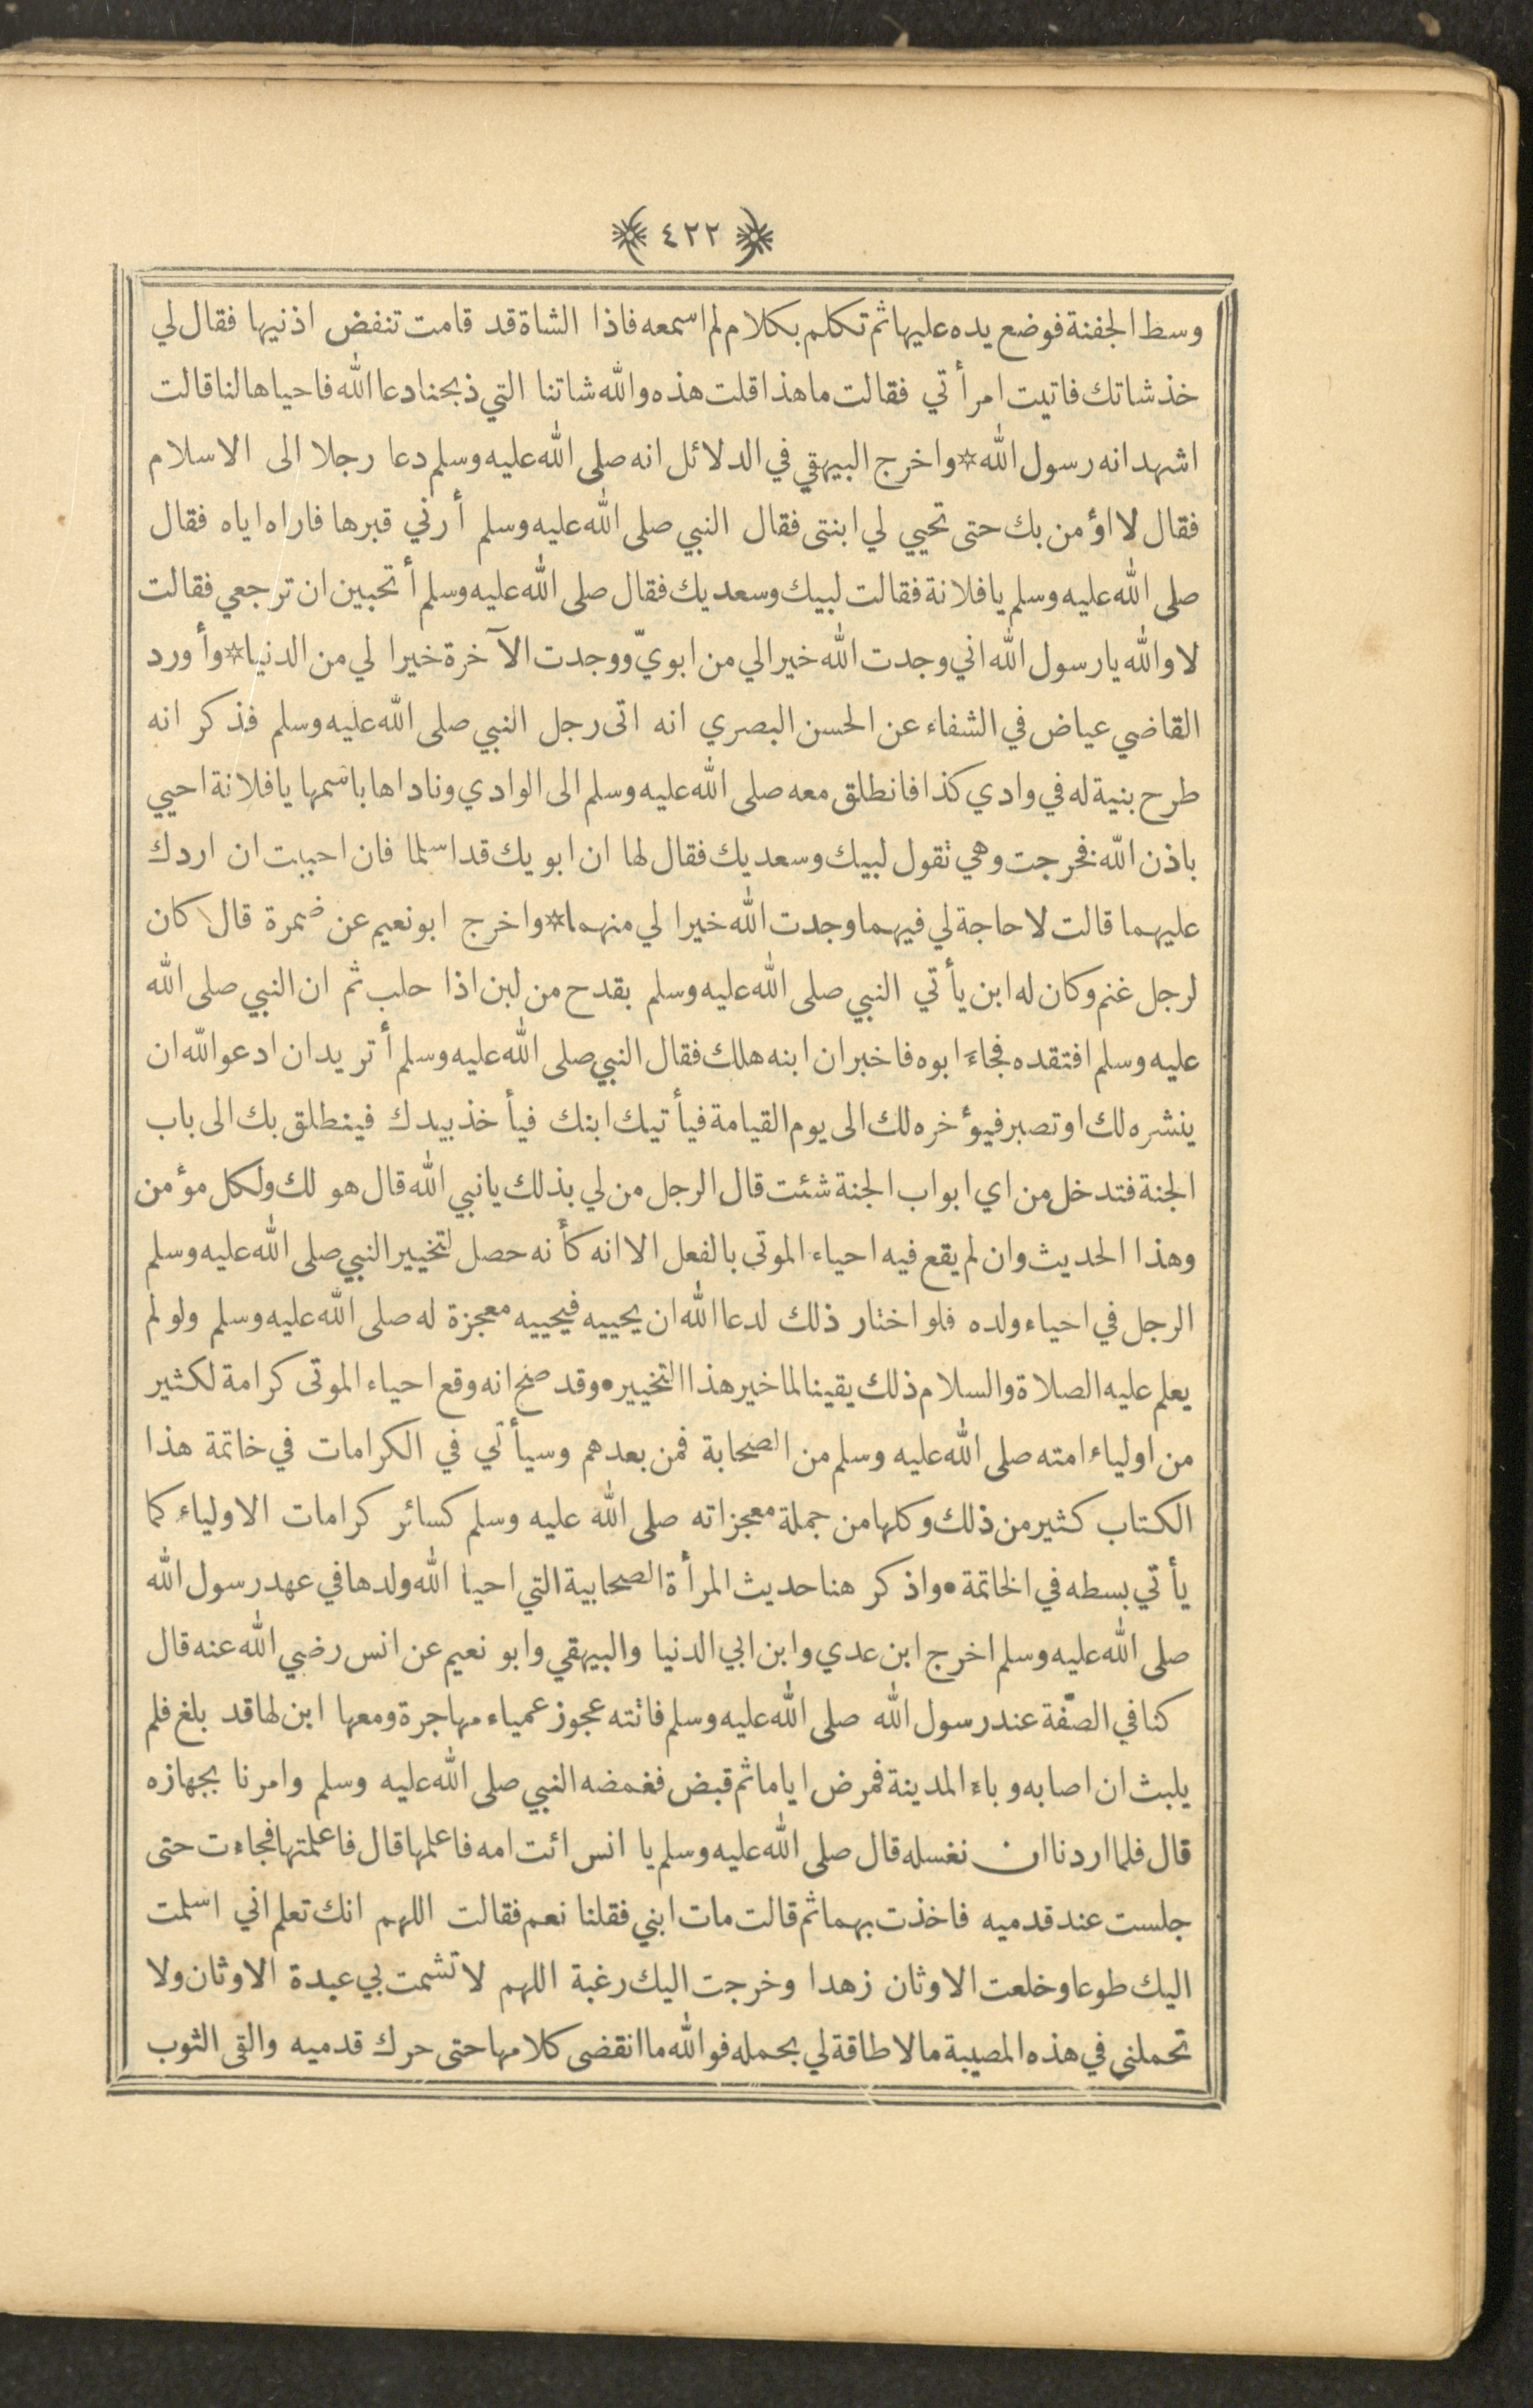 ٤٢٢
وسط الجفنة فوضع يده عليها ثم تكلم بكلام لم اسمعه فاذا الشاة قد قامت تنفض اذنيها فقال لي
خذ شاتك فاتيت امرأتي فقالت ما هذا قلت هذه والله شاتنا التي ذبحنا دعا الله فاحياها لنا قالت
اشهد انه رسول الله * واخرج البيهقي في الدلائل انه صلى الله عليه وسلم دعا رجلا الى الاسلام
فقال لا اؤمن بك حتى تحيي لي ابنتى فقال النبي صلى الله عليه وسلم أرني قبرها فاراه اياه فقال
صلى الله عليه وسلم يا فلانة فقالت لبيك وسعديك فقال صلى الله عليه وسلم أتحبين ان ترجعي فقالت
لا والله يا رسول الله اني وجدت الله خيرا لي من ابويّ ووجدت الآخرة خيرا لي من الدنيا * وأورد
القاضي عياض في الشفاء عن الحسن البصري انه اتى رجل النبي صلى الله عليه وسلم فذكر انه
طرح بنية له في وادي كذا فانطلق معه صلى الله عليه وسلم الى الوادي وناداها باسمها يا فلانة احيي
باذن الله فخرجت وهي تقول لبيك وسعديك فقال لها ان ابويك قد اسلما فان احببت ان اردك
عليهما قالت لا حاجة لي فيهما وجدت الله خيرا لي منهما * واخرج ابو نعيم عن ضمرة قال كان
لرجل غنم وكان له ابن يأتي النبي صلى الله عليه وسلم بقدح من لبن اذا حلب ثم ان النبي صلى الله
عليه وسلم افتقده فجاء ابوه فاخبر ان ابنه هلك فقال النبي صلى الله عليه وسلم أتريد ان ادعو الله ان
ينشره لك او تصبر فيؤخره لك الى يوم القيامة فيأتيك ابنك فيأخذ بيدك فينطلق بك الى باب
الجنة فتدخل من اي ابواب الجنة شئت قال الرجل من لي بذلك يا نبي الله قال هو لك ولكل مؤمن
وهذا الحديث وان لم يقع فيه احياء الموتى بالفعل الا انه كأنه حصل لتخيير النبي صلى الله عليه وسلم
الرجل في احياء ولده فلو اختار ذلك لدعا الله ان يحييه فيحييه معجزة له صلى الله عليه وسلم ولو لم
يعلم عليه الصلاة والسلام ذلك يقينا لما خير هذا التخيير • وقد صح انه وقع احياء الموتى كرامة لكثير
من اولياء امته صلى الله عليه وسلم من الصحابة فمن بعدهم وسيأتي في الكرامات في خاتمة هذا
الكتاب كثير من ذلك وكلها من جملة معجزاته صلى الله عليه وسلم كسائر كرامات الاولياء كما
يأتي بسطه في الخاتمة • واذكر هنا حديث المرأة الصحابية التي احيا الله ولدها في عهد رسول الله
صلى الله عليه وسلم اخرج ابن عدي وابن ابي الدنيا والبيهقي وابو نعيم عن انس رضي الله عنه قال
كنا في الصّفة عند رسول الله صلى الله عليه وسلم فاتته عجوز عمياء مهاجرة ومعها ابن لها قد بلغ فلم
يلبث ان اصابه وباء المدينة فمرض اياما ثم قبض فغمضه النبي صلى الله عليه وسلم وامرنا بجهازه
قال فلما اردنا ان نغسله قال صلى الله عليه وسلم يا انس ائت امه فاعلمها قال فاعلمتها فجاءت حتى
جلست عند قدميه فاخذت بهما ثم قالت مات ابني فقلنا نعم فقالت اللهم انك تعلم اني اسلمت
اليك طوعا وخلعت الاوثان زهدا وخرجت اليك رغبة اللهم لا تشمت بي عبدة الاوثان ولا
تحملنى في هذه المصيبة ما لا طاقة لي بحمله فوالله ما انقضى كلامها حتى حرك قدميه والقى الثوب